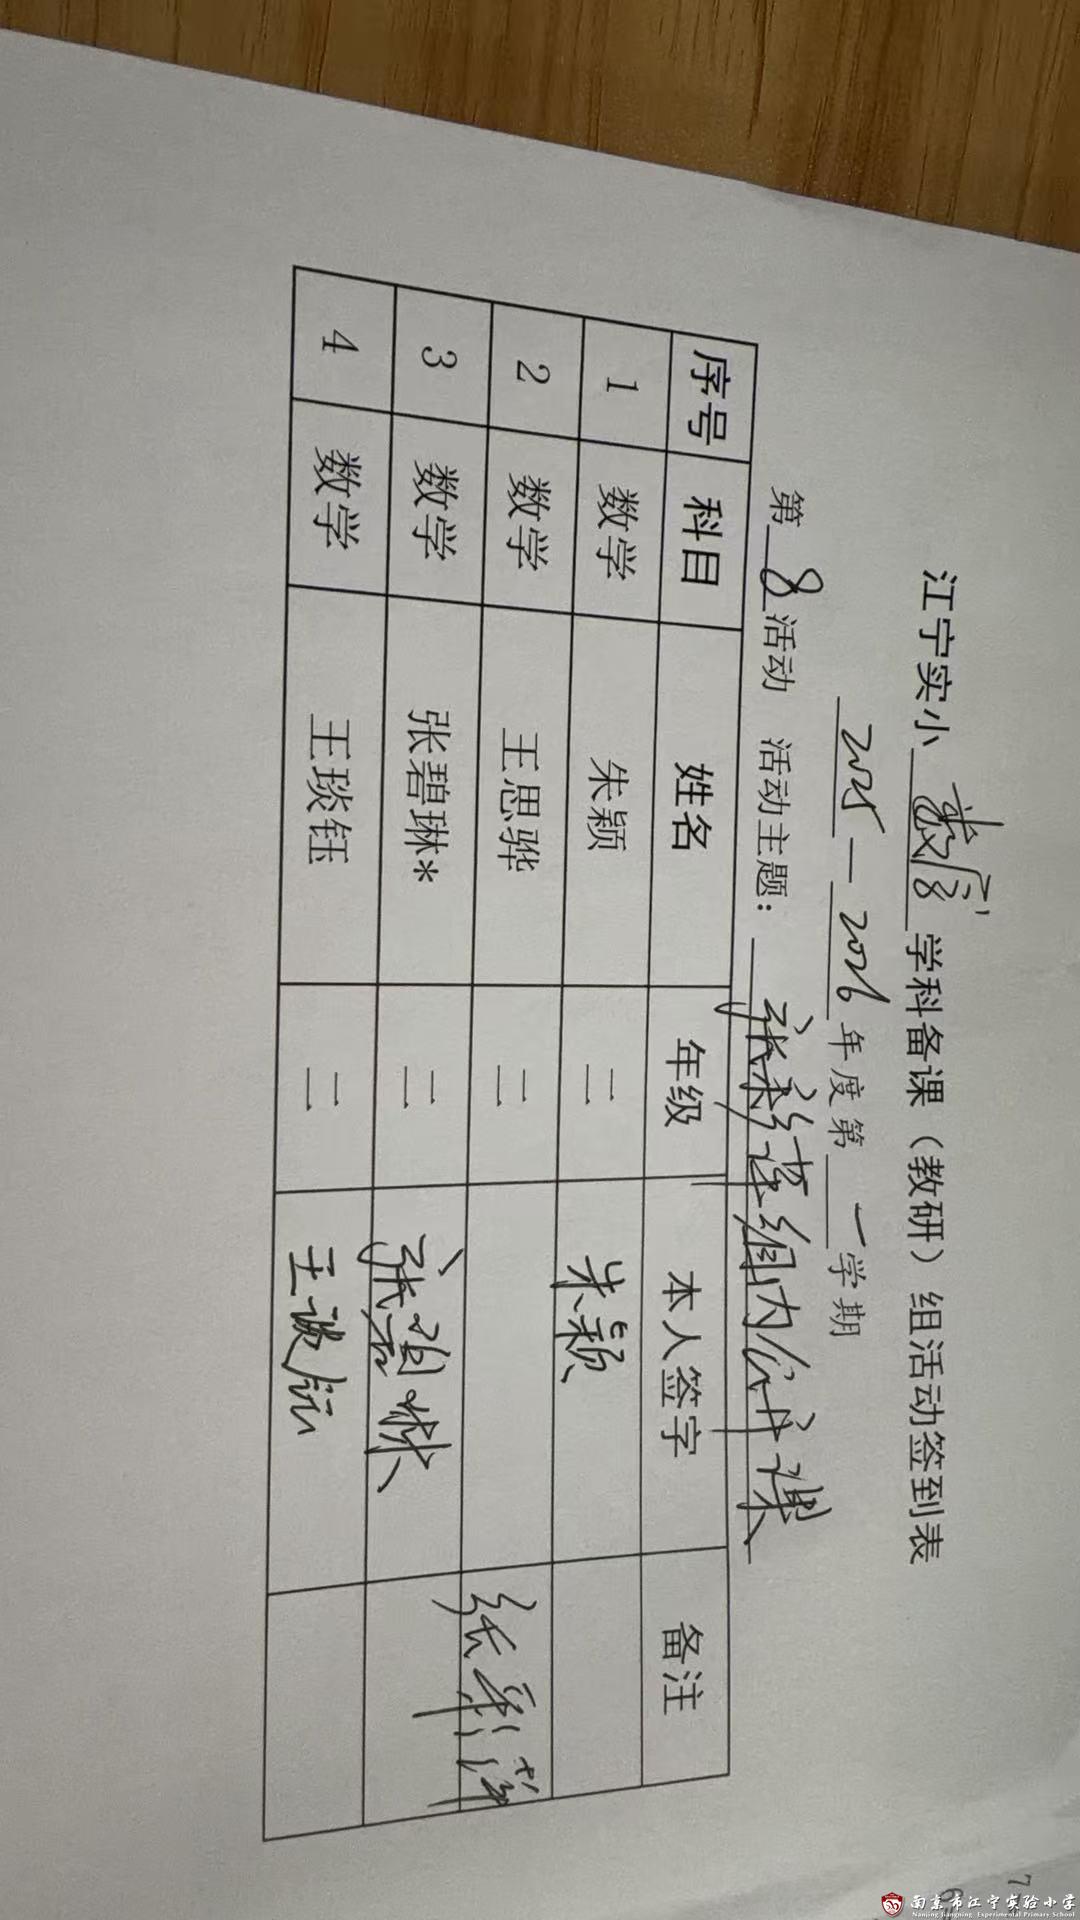 江宁实小 数学 学科备课（教研）组活动签到表
2025 — 2026 年度第 一 学期
第 8 活动 活动主题： 张彩萍组内公开课
序号 科目 姓名 年级 本人签字 备注
1 数学 朱颖 二 朱颖
2 数学 王思骅 二 张彩萍
3 数学 张碧琳* 二 张碧琳
4 数学 王琰钰 二 王琰钰
7
南京市江宁实验小学
Nanjing Jiangning Experimental Primary School